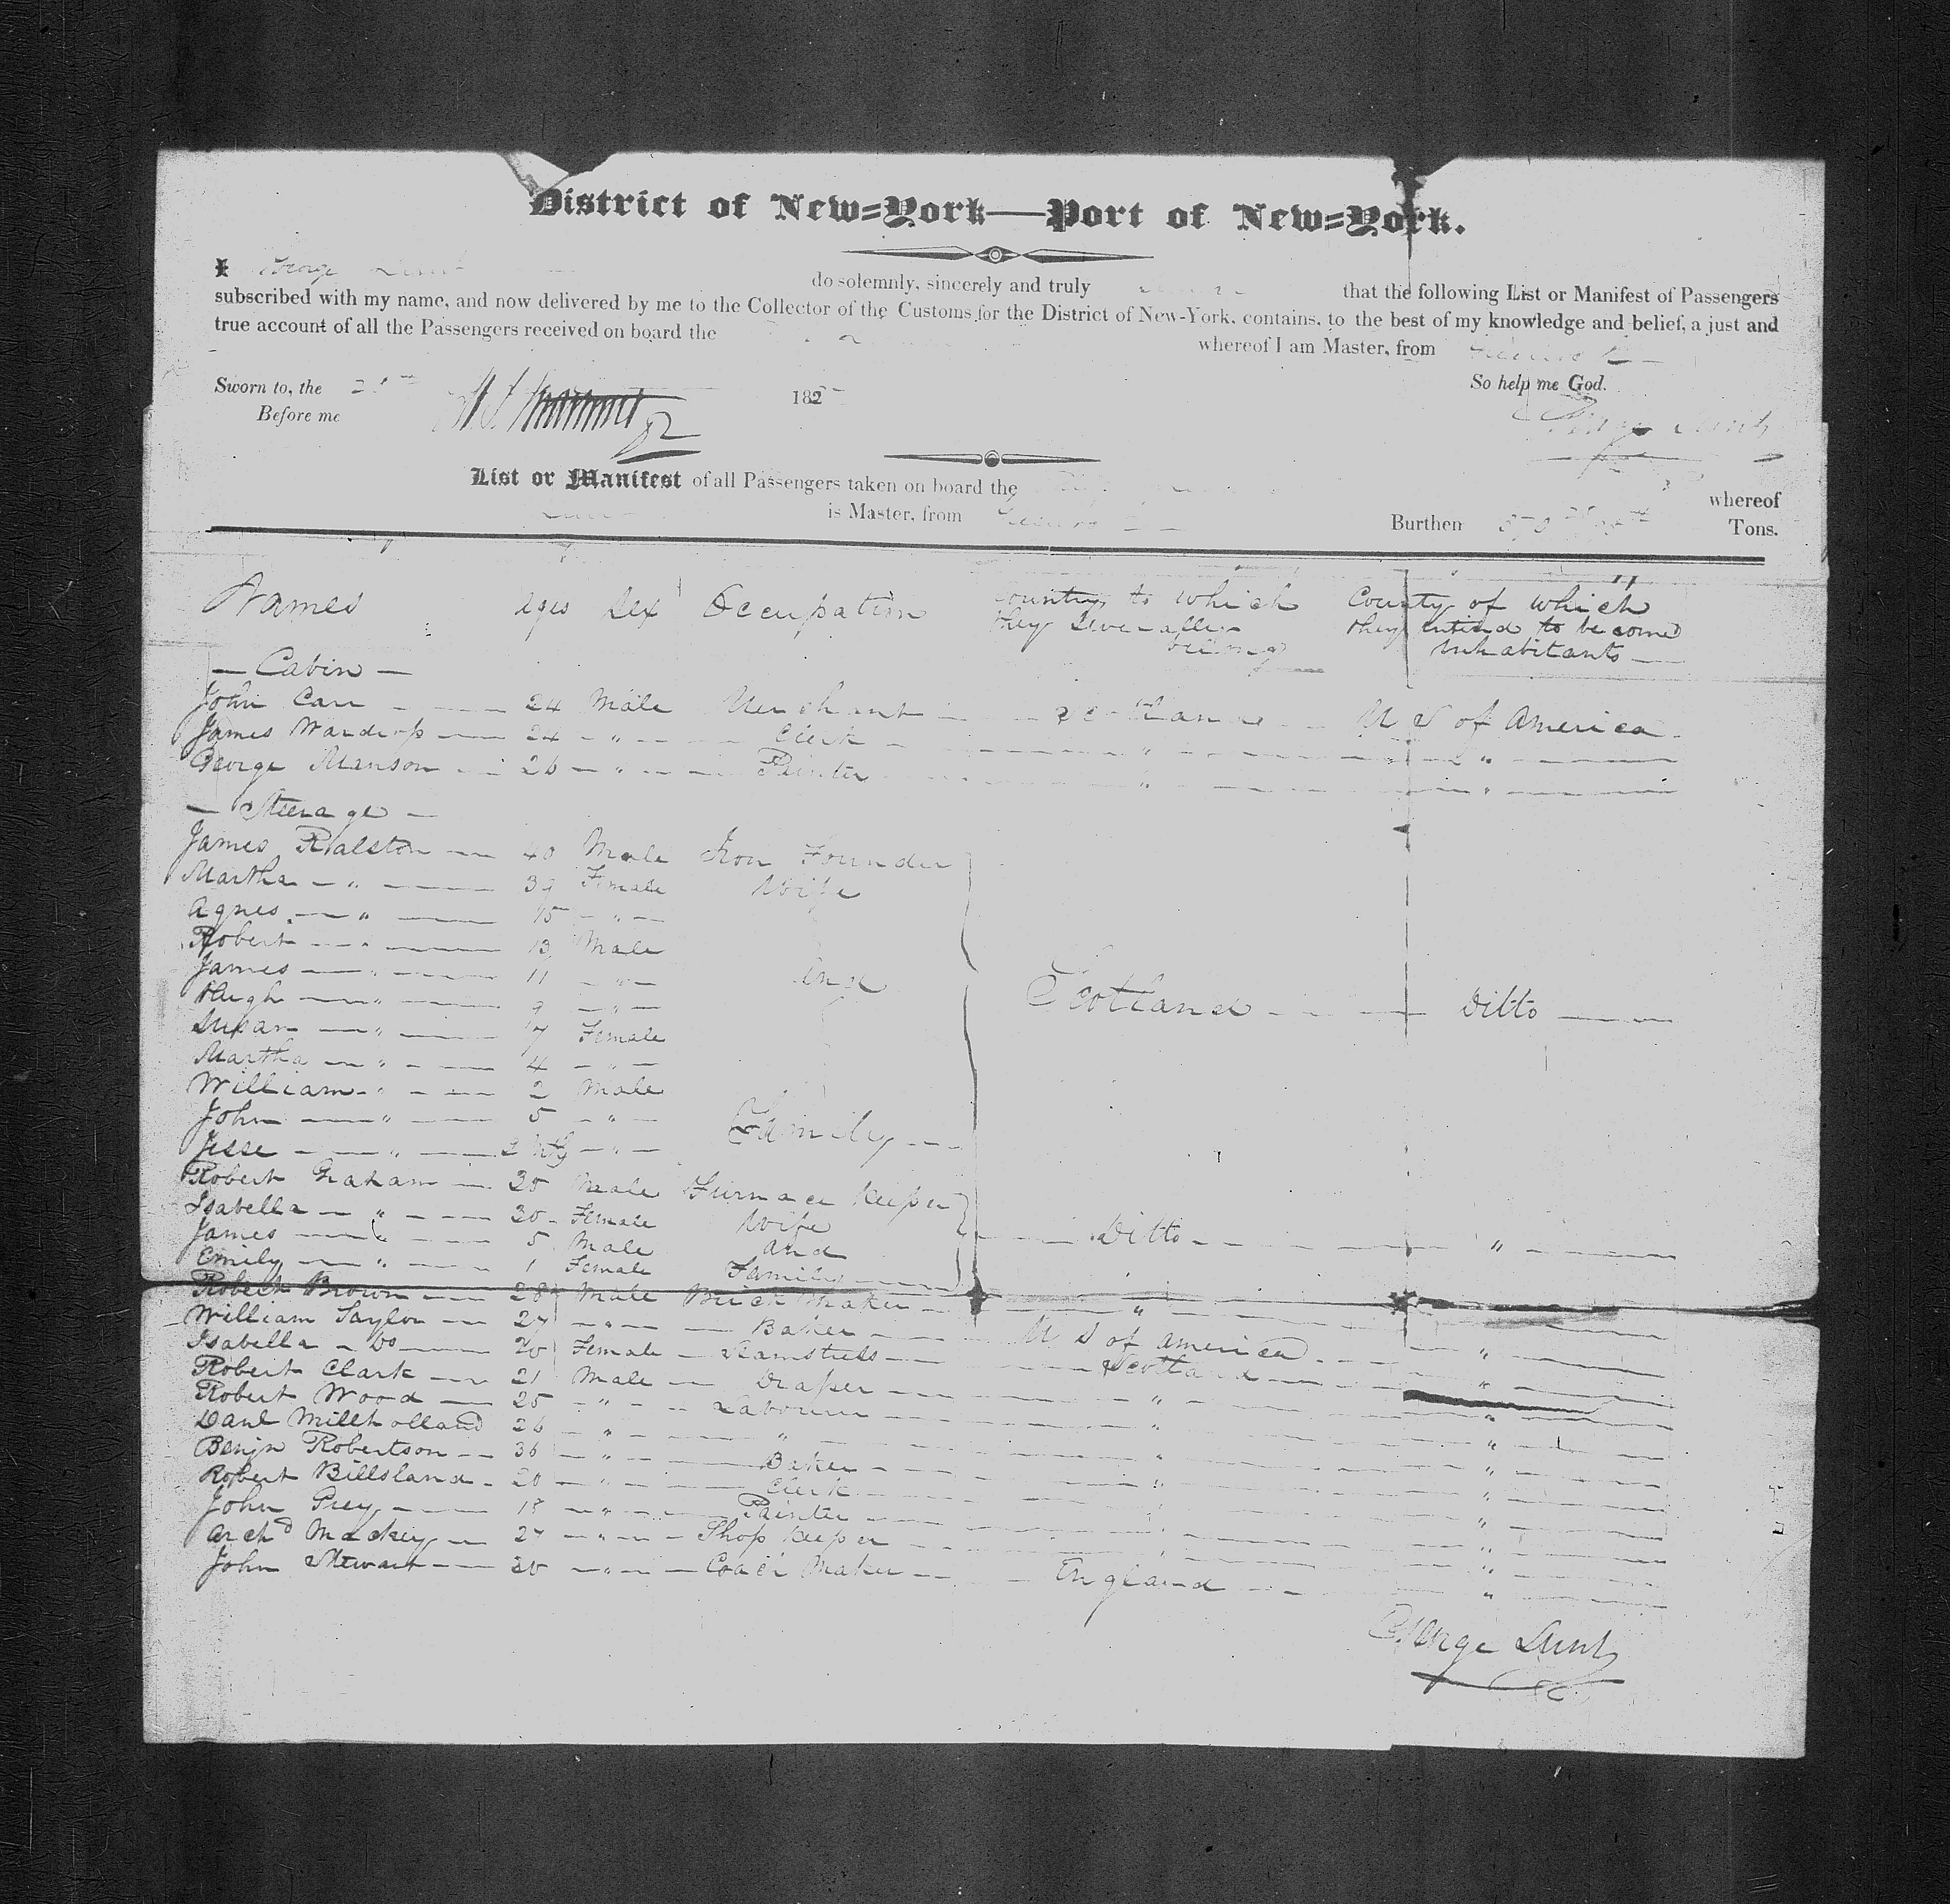 District of New=York—Port of New=York.
I George Lunt do solemnly, sincerely and truly that the following List or Manifest of Passengers
subscribed with my name, and now delivered by me to the Collector of the Customs for the District of New-York, contains, to the best of my knowledge and belief, a just and
true account of all the Passengers received on board the whereof I am Master, from Greenock
So help me God.
Sworn to, the 182
Before me
George Lunt
List or Manifest of all Passengers taken on board the whereof
Lunt is Master, from Greenock Burthen Tons.
Names ages Sex Occupation Country to which they Severally belong County of which they entend to be comed Inhabitants
— Cabin —
John Carr 24 Male Merchant Scotland U S of America
James Wardrop 24 " Clerk " "
George Manson 26 " Painter " "
— Steerage —
James Ralston 40 Male Iron Founder
Martha " 39 Female Wife
Agnes " 15 "
Robert " 13 Male
James " 11 " and
Hugh " 9 " Scotland Ditto
Susan " 7 Female
Martha " 4 "
William " 2 Male
John " 5 "
Jesse " "
Family
Robert Graham 30 Male Furnace Keeper
Isabella " 30 Female Wife
James " 5 Male and Ditto "
Emily " 1 Female Family
Robert Brown 28 Male Brick Maker " "
William Taylor 27 " Baker U S of America "
Isabella Do 20 Female Seamstress Scotland "
Robert Clark 21 Male Draper " "
Robert Wood 25 " Labourer " "
Danl Millholland 26 " " " "
Benjn Robertson 36 " Baker " "
Robert Billsland 20 " Clerk " "
John Grey 18 " Painter " "
Archd Mackey 27 " Shop Keeper " "
John Stewart 20 " Coach Maker England "
George Lunt